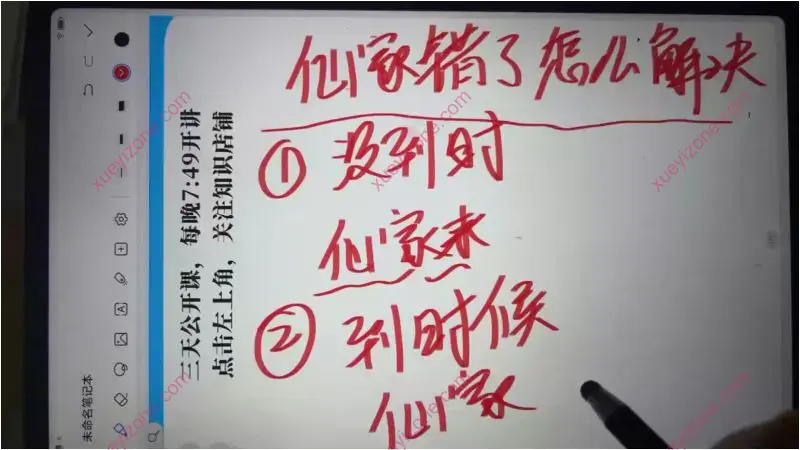 仙家错了怎么解决
① 没到时
仙家来
② 到时候
仙家
三天公开课，每晚7:49开讲
点击左上角，关注知识店铺
未命名笔记本
xueyizone.com
xueyizone.com
xueyizone.com
xueyizone.com
xueyizone.com
xueyizone.com